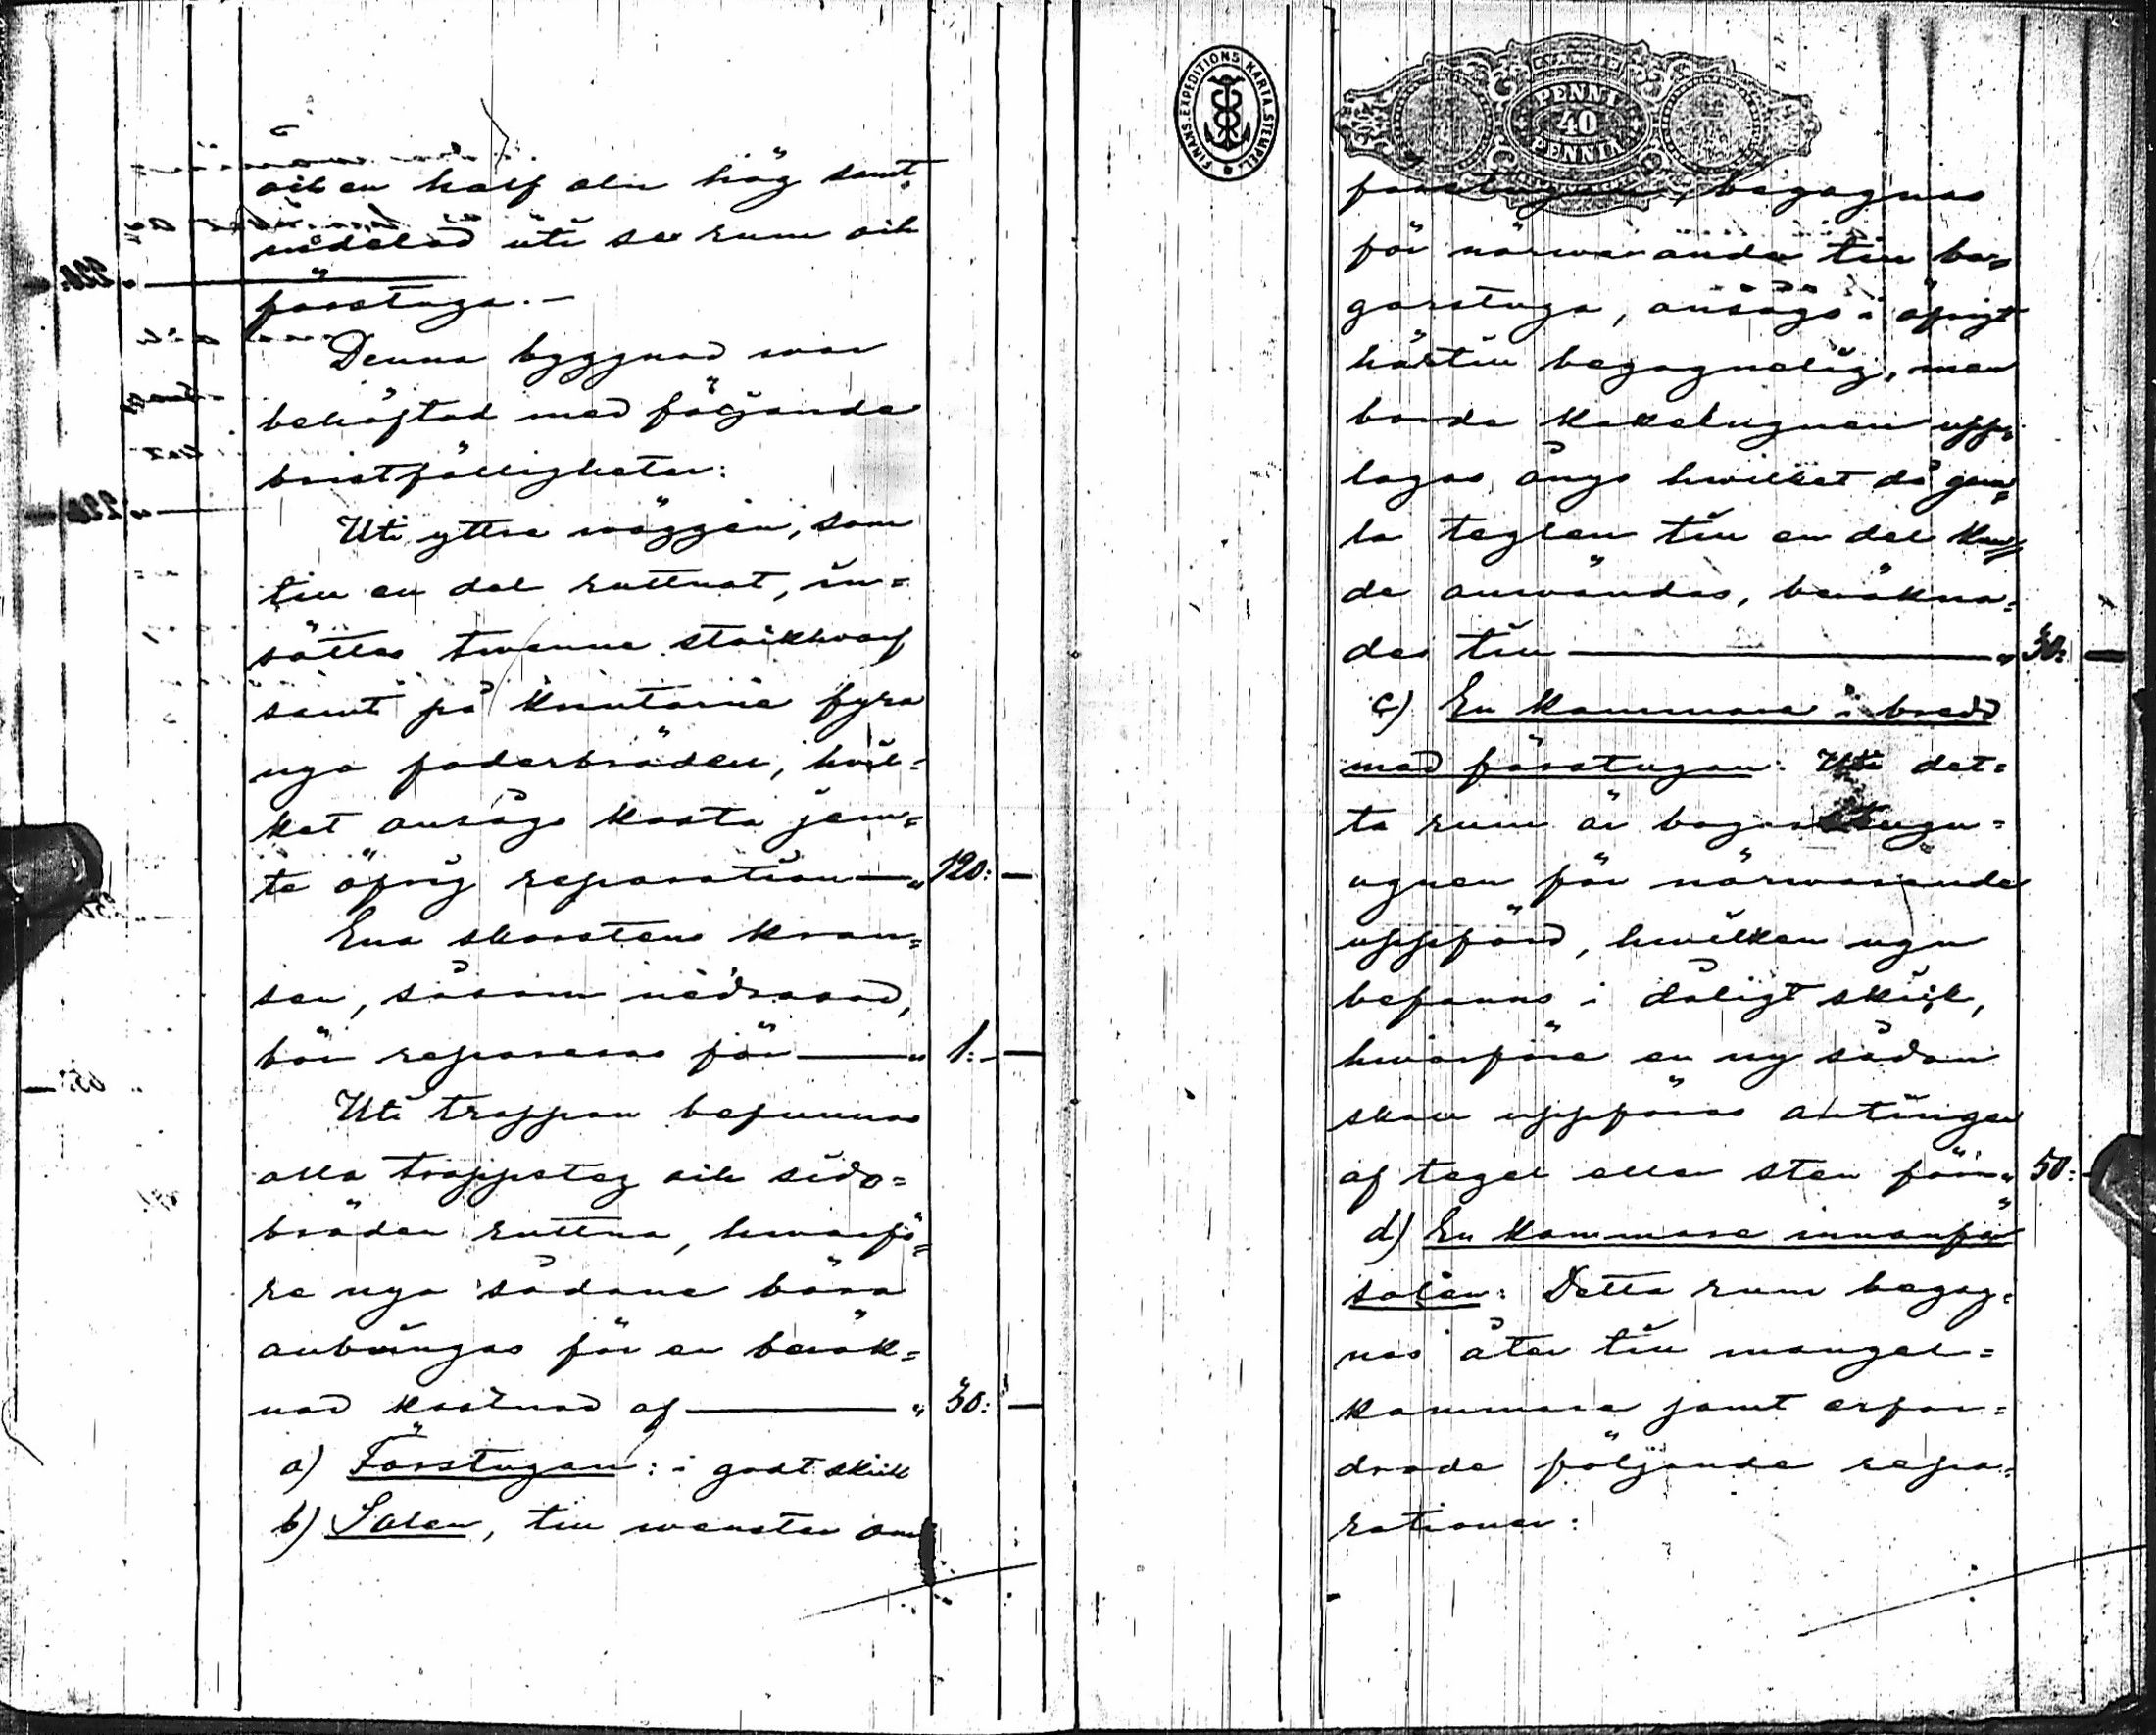 och en half aln hög samt
indelad uti sex rum och
förstuga. —
Denna byggnad war
behäftad med följande
bristfälligheter:
Uti yttre wäggen, som
till en del ruttnat, in=
sättes twenne stockhvarf
samt på knutarne fyra
nya foderbräden, hvil=
ket ansågs kosta jem=
te öfrig reparation — „ 120: —
Ena skorstens kran=
sen, såsom nedrasad,
bör repareras för — „ 1: —
Uti trappan befunnos
alla trappsteg och sido=
bräden ruttna, hwarfö=
re nya sådane böra
anbringas för en beräk=
nad kostnad af — „ 30: —
a) Förstugan: i godt skick
b) Salen, till wenster om
FINANS. EXPEDITIONS KARTA. STEMPEL.
PENNI
40
PENNIÄ
förstugan, begagnas
för närwarande till ba=
garstuga, ansågs i öfrigt
härtill begagnelig, men
borde kakelugnen upp=
lagas ånyo hwilket då gam=
la teglen till en del kun=
de användas, beräkna=
des till — „ 30: —
c) En kammare i bredd
med förstugan: Uti det=
ta rum är bagarstugu=
ugnen för närwarande
uppförd, hwilken ugn
befanns i dåligt skick,
hwarföre en ny sådan
skall uppföras antingen
af tegel eller sten för „ 50: —
d) En kammare innanför
salen: Detta rum begag=
nas åter till mangel=
kammare samt erfor=
drade följande repa=
rationer: